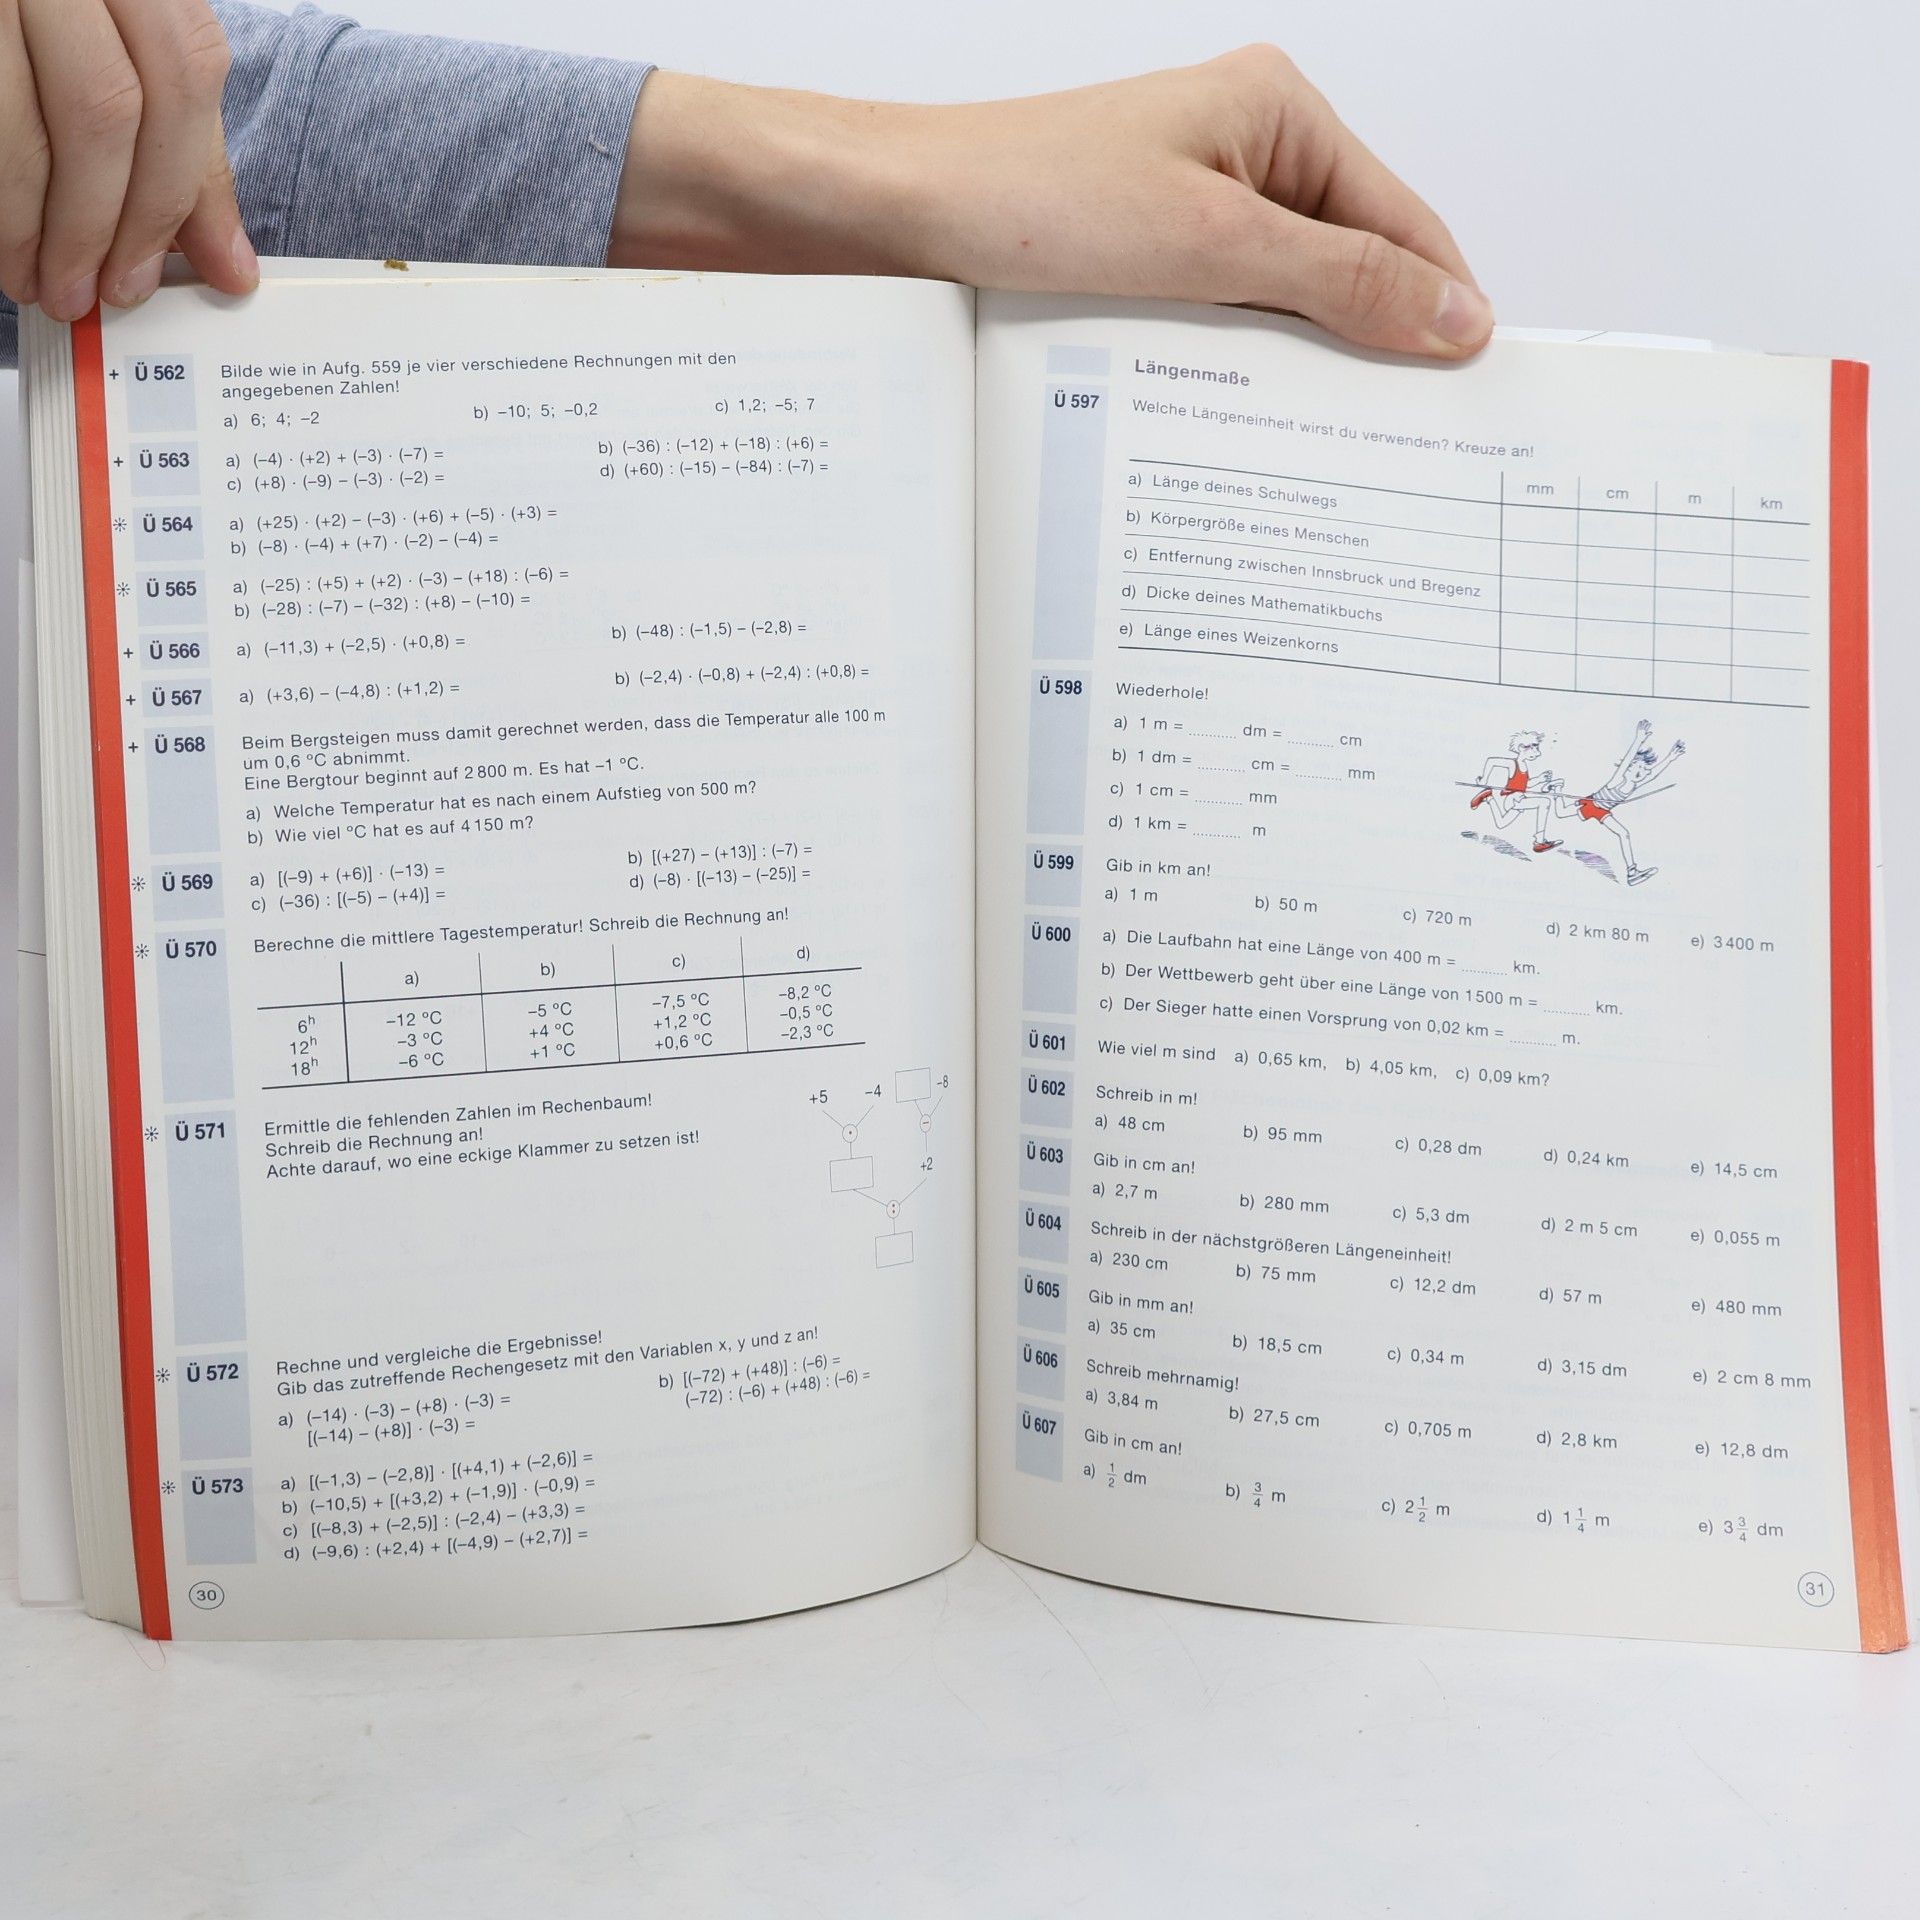 + Ü 562 Bilde wie in Aufg. 559 je vier verschiedene Rechnungen mit den
angegebenen Zahlen!
a) 6; 4; –2 b) –10; 5; –0,2 c) 1,2; –5; 7
+ Ü 563 a) (–4) · (+2) + (–3) · (–7) = b) (–36) : (–12) + (–18) : (+6) =
c) (+8) · (–9) – (–3) · (–2) = d) (+60) : (–15) – (–84) : (–7) =
* Ü 564 a) (+25) · (+2) – (–3) · (+6) + (–5) · (+3) =
b) (–8) · (–4) + (+7) · (–2) – (–4) =
* Ü 565 a) (–25) : (+5) + (+2) · (–3) – (+18) : (–6) =
b) (–28) : (–7) – (–32) : (+8) – (–10) =
+ Ü 566 a) (–11,3) + (–2,5) · (+0,8) = b) (–48) : (–1,5) – (–2,8) =
+ Ü 567 a) (+3,6) – (–4,8) : (+1,2) = b) (–2,4) · (–0,8) + (–2,4) : (+0,8) =
+ Ü 568 Beim Bergsteigen muss damit gerechnet werden, dass die Temperatur alle 100 m
um 0,6 °C abnimmt.
Eine Bergtour beginnt auf 2 800 m. Es hat –1 °C.
a) Welche Temperatur hat es nach einem Aufstieg von 500 m?
b) Wie viel °C hat es auf 4 150 m?
* Ü 569 a) [(–9) + (+6)] · (–13) = b) [(+27) – (+13)] : (–7) =
c) (–36) : [(–5) – (+4)] = d) (–8) · [(–13) – (–25)] =
* Ü 570 Berechne die mittlere Tagestemperatur! Schreib die Rechnung an!
a) b) c) d)
6h –12 °C –5 °C –7,5 °C –8,2 °C
12h –3 °C +4 °C +1,2 °C –0,5 °C
18h –6 °C +1 °C +0,6 °C –2,3 °C
* Ü 571 Ermittle die fehlenden Zahlen im Rechenbaum!
Schreib die Rechnung an!
Achte darauf, wo eine eckige Klammer zu setzen ist!
+5 –4 –8
· –
+2
:
* Ü 572 Rechne und vergleiche die Ergebnisse!
Gib das zutreffende Rechengesetz mit den Variablen x, y und z an!
a) (–14) · (–3) – (+8) · (–3) = b) [(–72) + (+48)] : (–6) =
[(–14) – (+8)] · (–3) = (–72) : (–6) + (+48) : (–6) =
* Ü 573 a) [(–1,3) – (–2,8)] · [(+4,1) + (–2,6)] =
b) (–10,5) + [(+3,2) + (–1,9)] · (–0,9) =
c) [(–8,3) + (–2,5)] : (–2,4) – (+3,3) =
d) (–9,6) : (+2,4) + [(–4,9) – (+2,7)] =
30
Längenmaße
Ü 597 Welche Längeneinheit wirst du verwenden? Kreuze an!
mm cm m km
a) Länge deines Schulwegs
b) Körpergröße eines Menschen
c) Entfernung zwischen Innsbruck und Bregenz
d) Dicke deines Mathematikbuchs
e) Länge eines Weizenkorns
Ü 598 Wiederhole!
a) 1 m = ............ dm = ............ cm
b) 1 dm = ............ cm = ............ mm
c) 1 cm = ............ mm
d) 1 km = ............ m
Ü 599 Gib in km an!
a) 1 m b) 50 m c) 720 m d) 2 km 80 m e) 3 400 m
Ü 600 a) Die Laufbahn hat eine Länge von 400 m = ............ km.
b) Der Wettbewerb geht über eine Länge von 1 500 m = ............ km.
c) Der Sieger hatte einen Vorsprung von 0,02 km = ............ m.
Ü 601 Wie viel m sind a) 0,65 km, b) 4,05 km, c) 0,09 km?
Ü 602 Schreib in m!
a) 48 cm b) 95 mm c) 0,28 dm d) 0,24 km e) 14,5 cm
Ü 603 Gib in cm an!
a) 2,7 m b) 280 mm c) 5,3 dm d) 2 m 5 cm e) 0,055 m
Ü 604 Schreib in der nächstgrößeren Längeneinheit!
a) 230 cm b) 75 mm c) 12,2 dm d) 57 m e) 480 mm
Ü 605 Gib in mm an!
a) 35 cm b) 18,5 cm c) 0,34 m d) 3,15 dm e) 2 cm 8 mm
Ü 606 Schreib mehrnamig!
a) 3,84 m b) 27,5 cm c) 0,705 m d) 2,8 km e) 12,8 dm
Ü 607 Gib in cm an!
a) 1/2 dm b) 3/4 m c) 2 1/2 m d) 1 1/4 m e) 3 3/4 dm
31